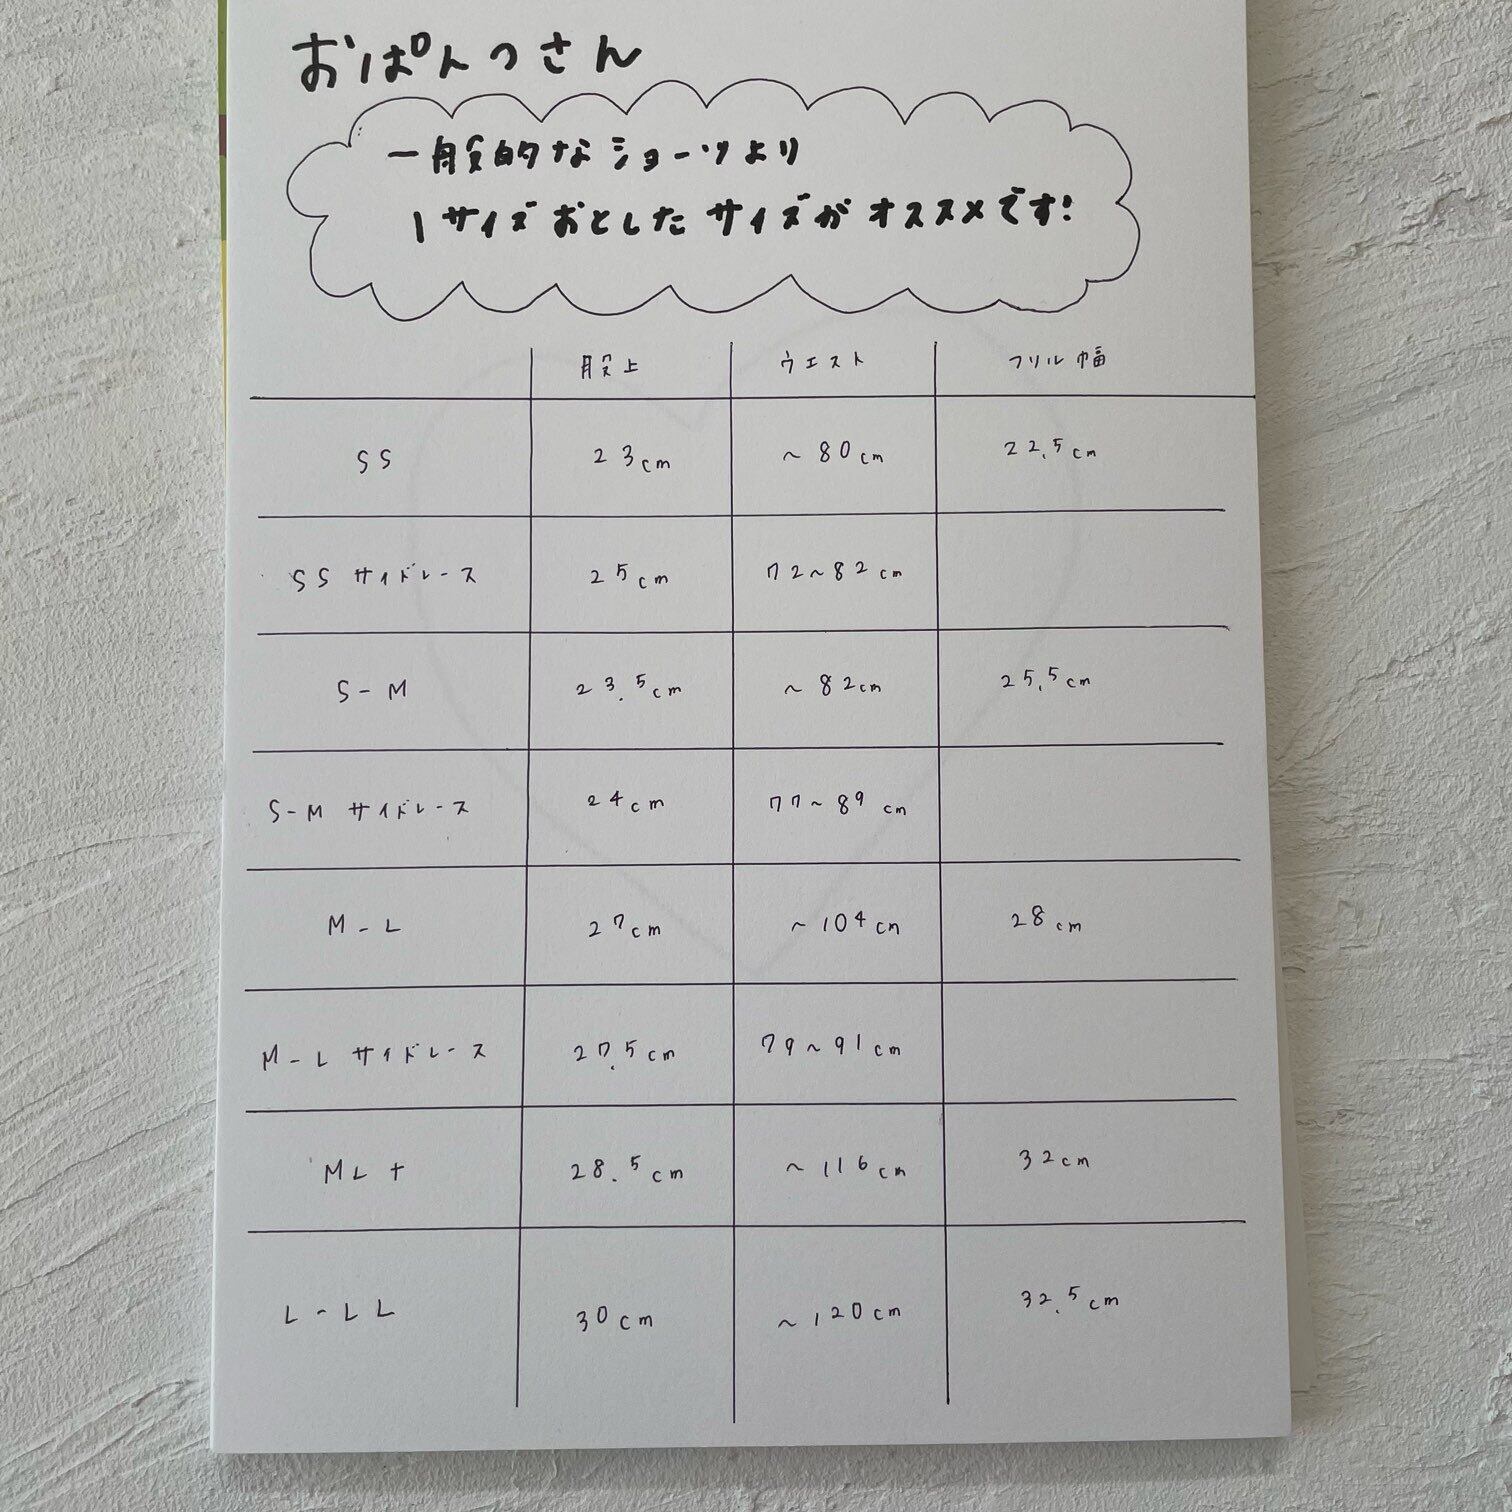 おぱんつさん
一般的なショーツより
1サイズおとしたサイズがオススメです!
股上 ウエスト フリル幅
SS 23cm ~80cm 22.5cm
SSサイドレース 25cm 72~82cm
S-M 23.5cm ~82cm 25.5cm
S-Mサイドレース 24cm 77~89cm
M-L 27cm ~104cm 28cm
M-Lサイドレース 27.5cm 79~91cm
ML+ 28.5cm ~116cm 32cm
L-LL 30cm ~120cm 32.5cm